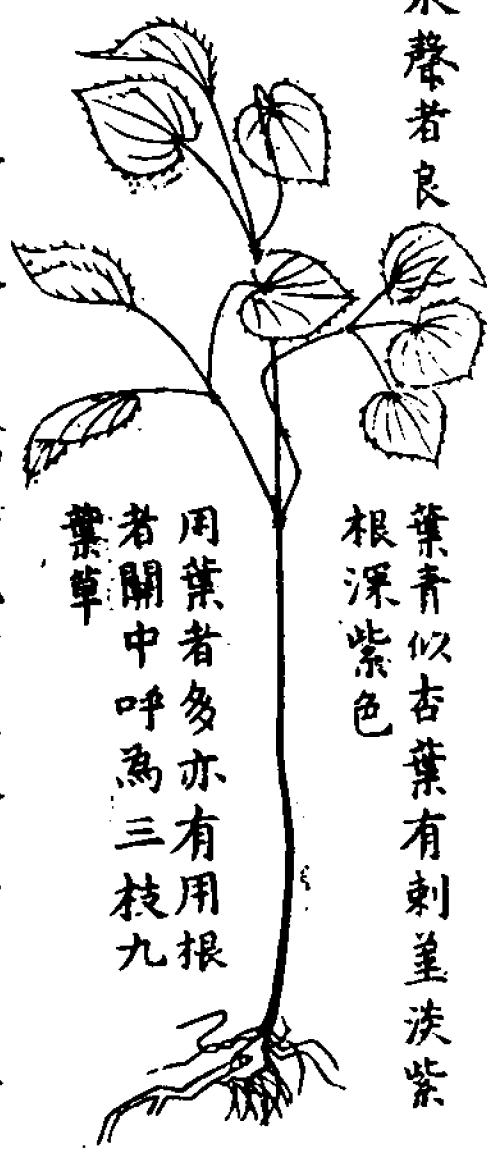 聲者良
葉青似杏葉有刺莖淡紫
根深紫色
用葉者多亦有用根
者關中呼為三枝九
葉草